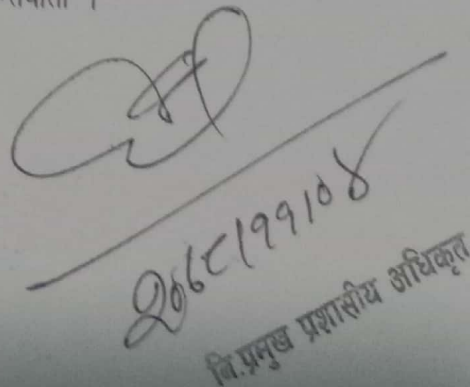 २०६८।११।०४
नि.प्रमुख प्रशासीय अधिकृत